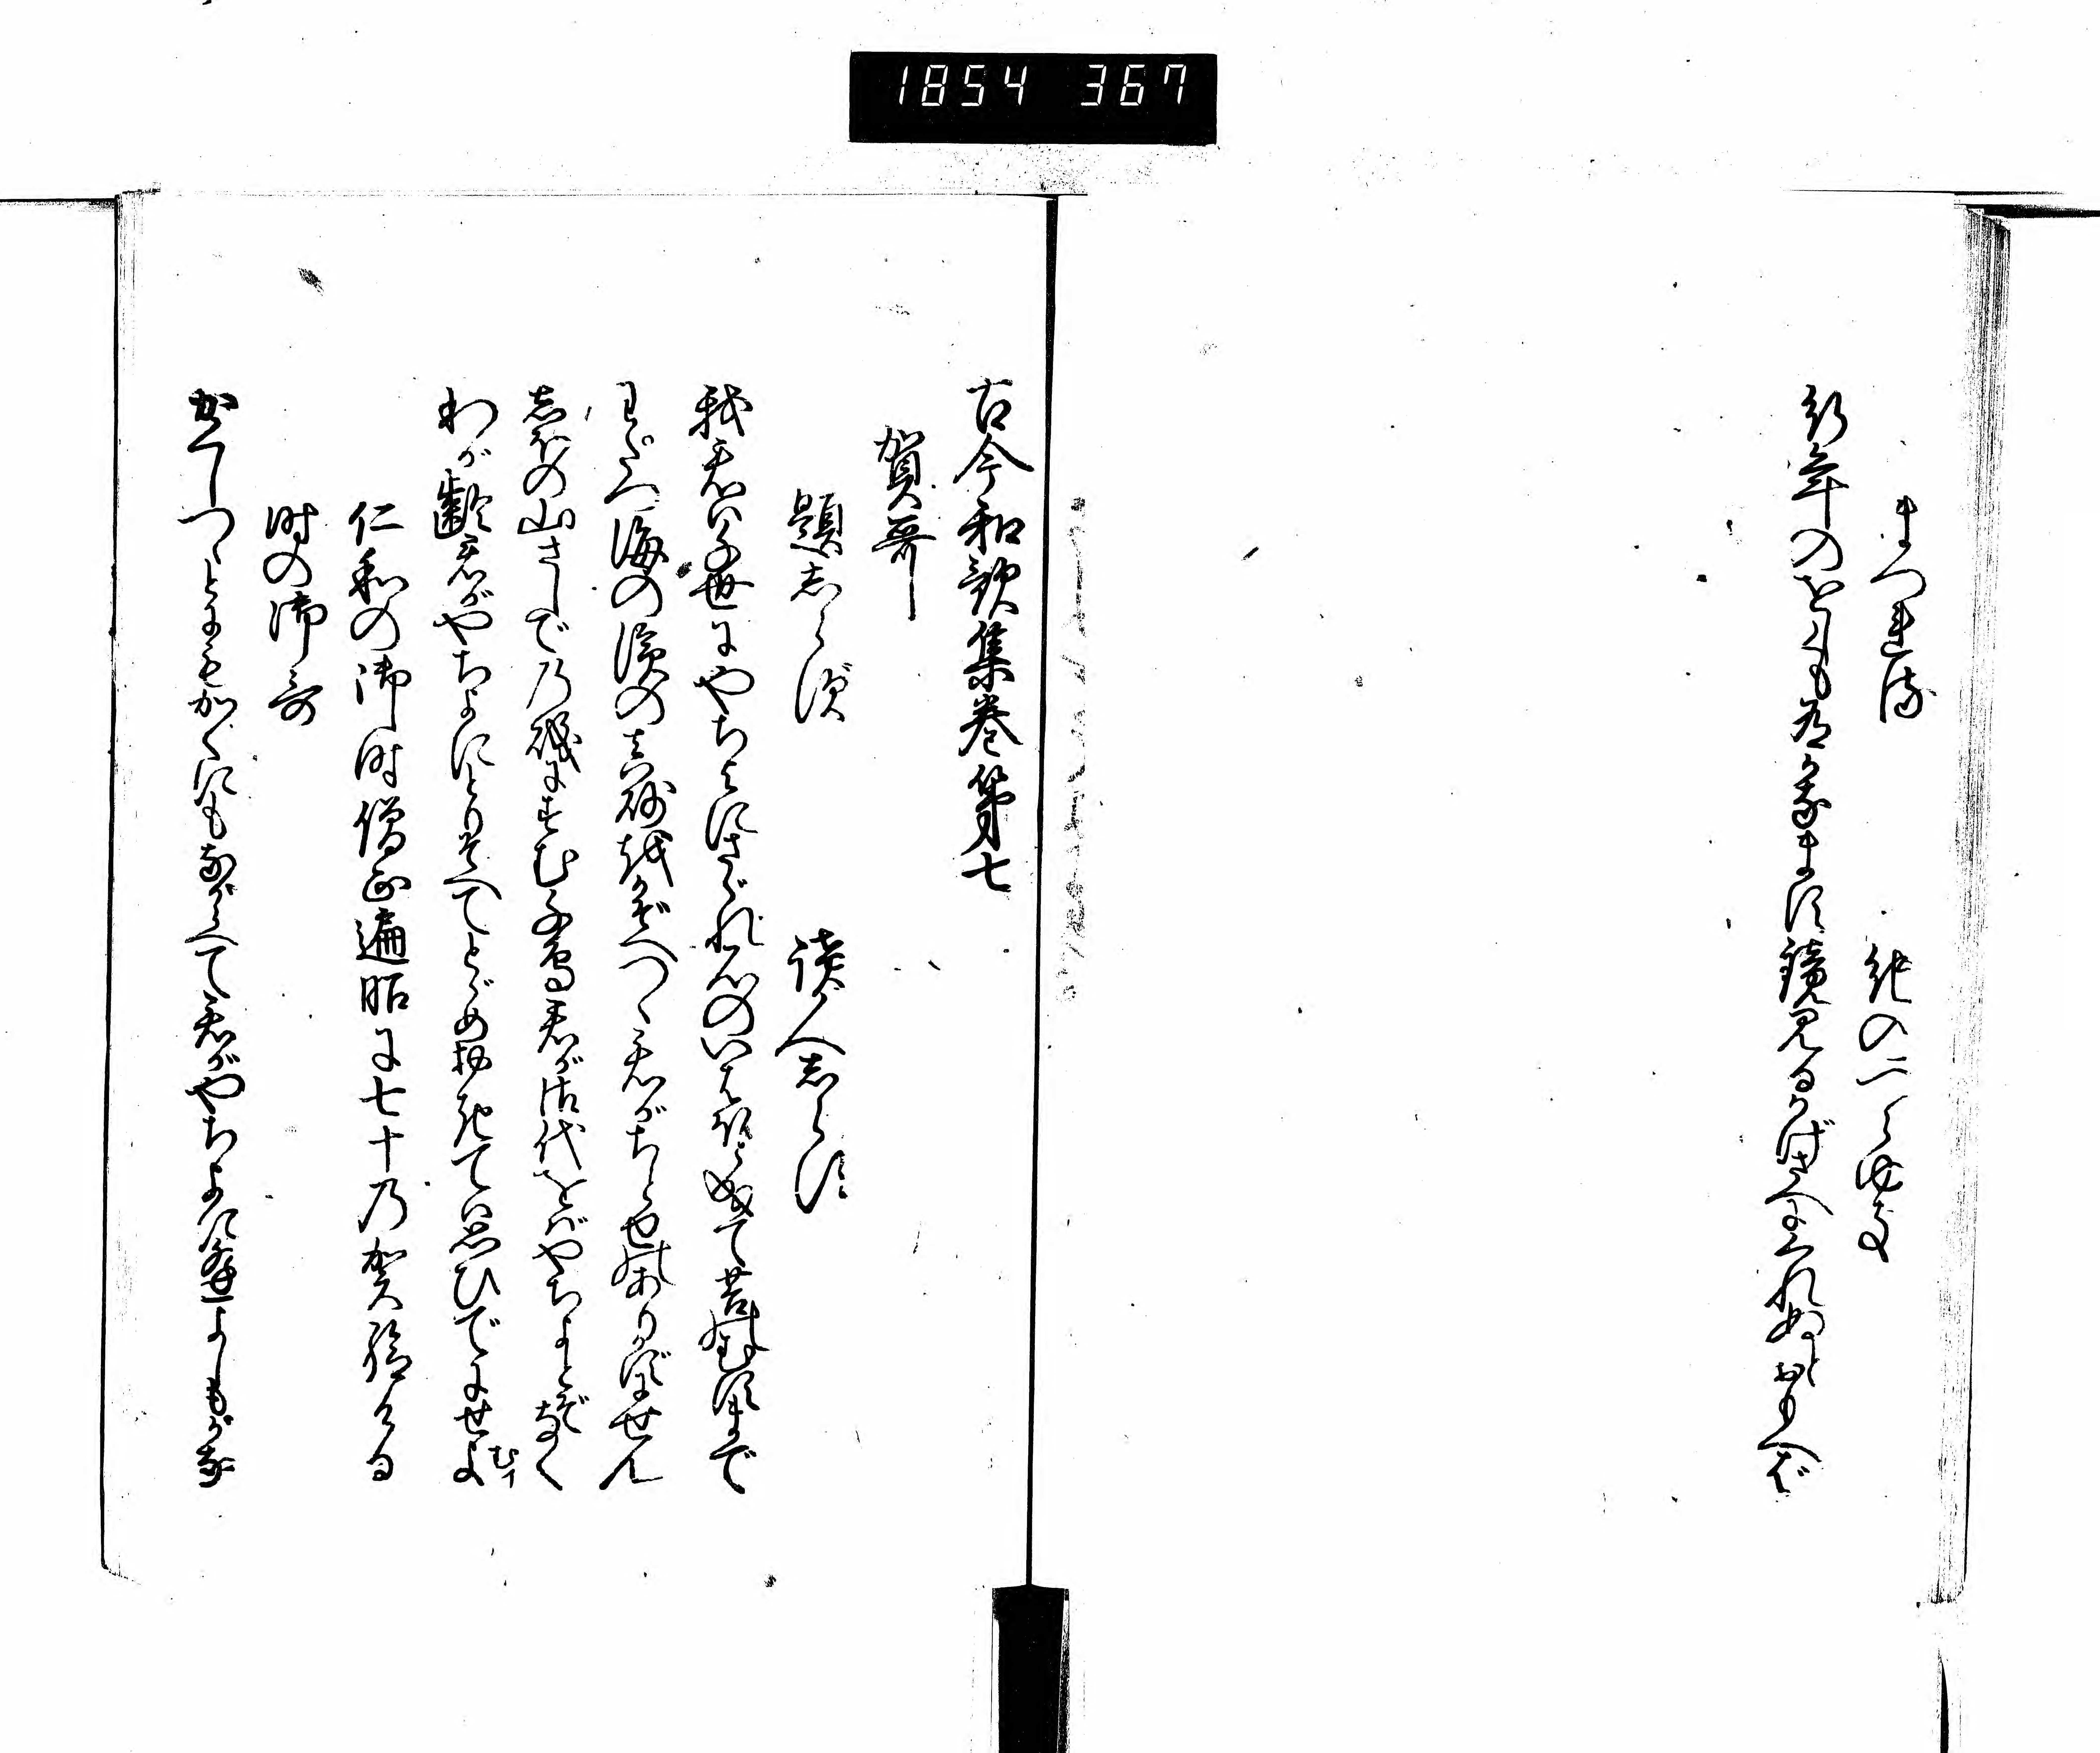 1854 367
まつれる　紀のつらゆき
行年のをしくも有かなます鏡見るかげさへにくれぬとおもへば
古今和歌集巻第七
賀哥
題志らず　読人志らず
我君は千世にやちよにさゞれ石のいはほと成て苔むすまで
わたつ海の濱の真砂をかぞへつゝ君がちとせのありかずにせん
志ほの山さしでの磯にすむ千鳥君が御代をばやちよとぞなく
わが齢君がやちよにとりそへてとゞめ置てば思ひでにせよ
むイ
仁和の御時僧正遍昭に七十の賀給ける
時の御哥
かくしつゝとにもかくにもながらへて君がやちよに逢よしもがな